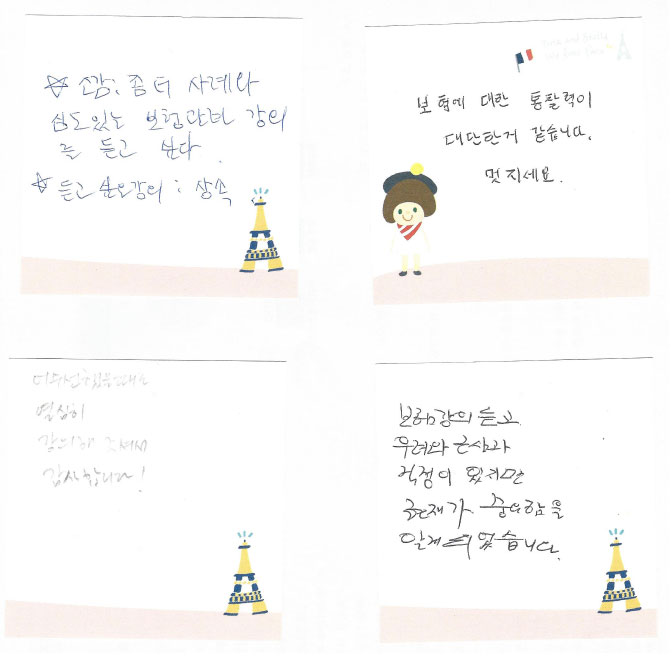 ☆ 소감: 좀 더 사례와
심도있는 보험관련 강의
를 듣고 싶다.
☆ 듣고 싶은강의 : 상속
보험에 대한 통찰력이
대단한거 같습니다.
멋지세요.
열심히
강의해 주셔서
감사합니다!
보험강의 듣고
우려와 근심과
걱정이 있지만
현재가 중요함을
알게 되었습니다.